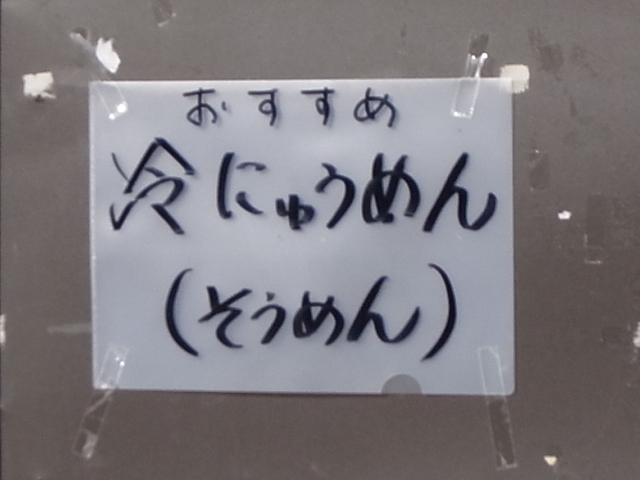 おすすめ
冷にゅうめん
(そうめん)